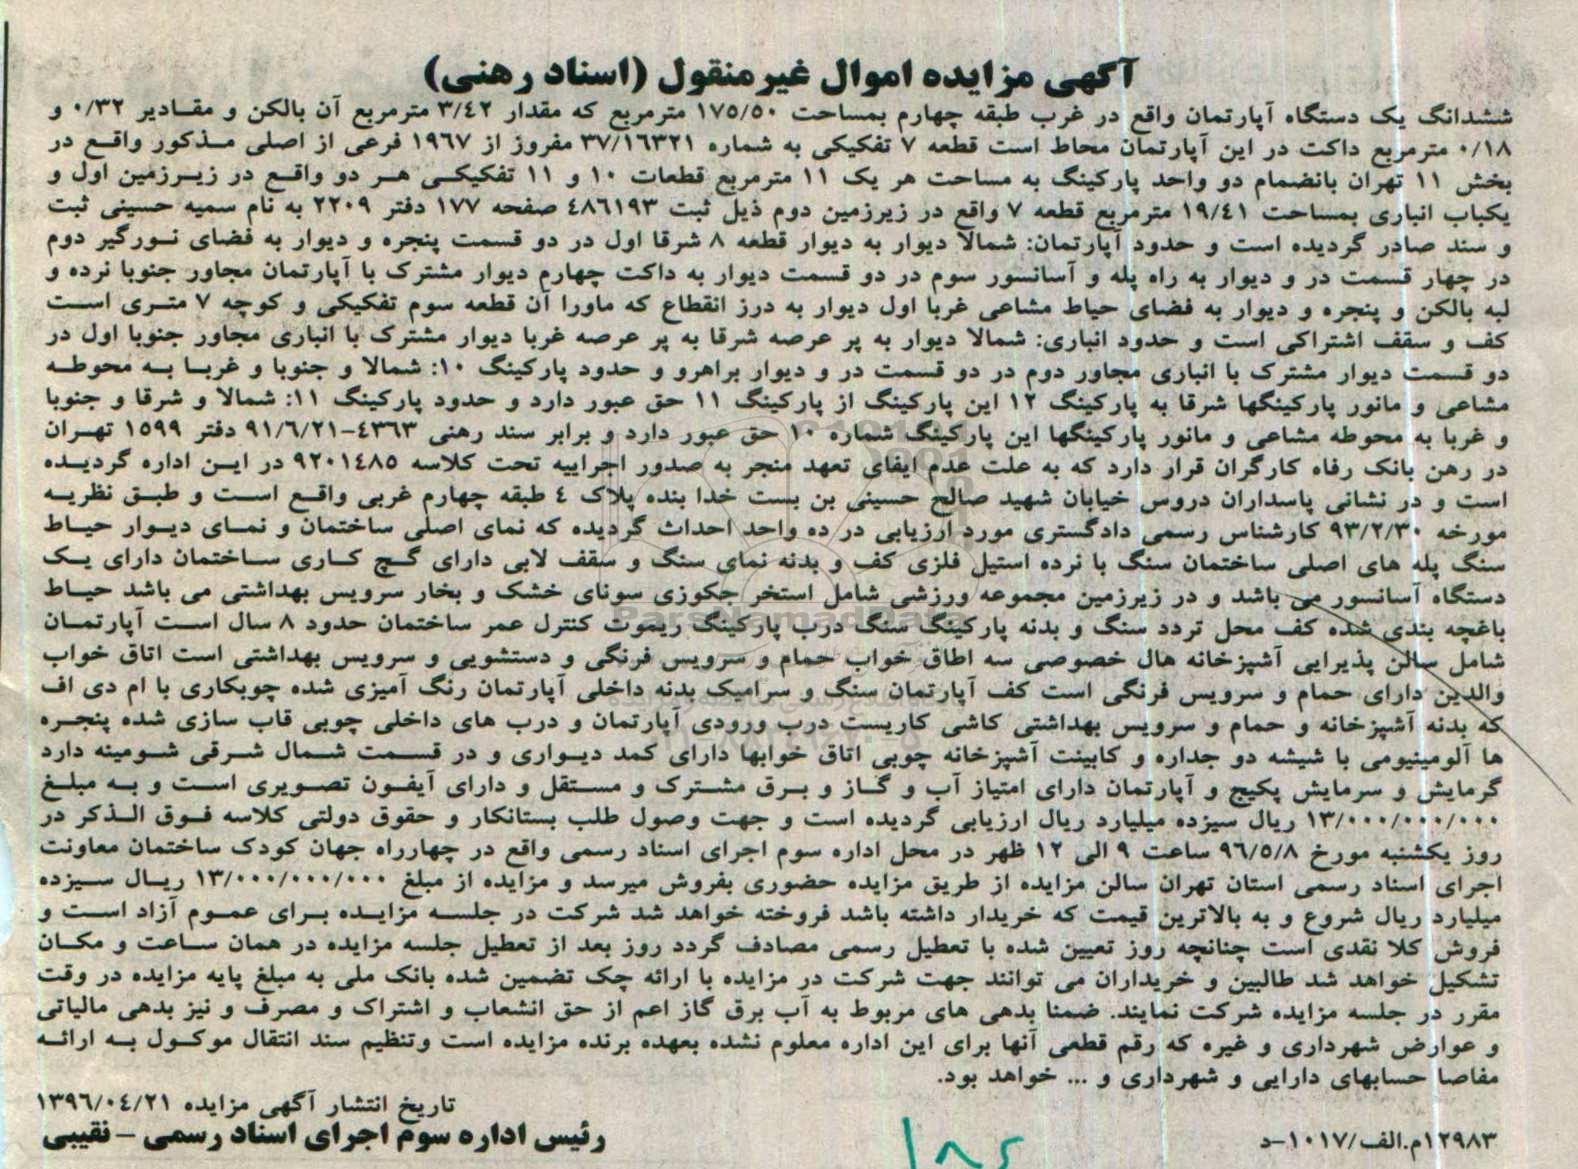 آگهی مزایده اموال غیرمنقول (اسناد رهنی)
ششدانگ یک دستگاه آپارتمان واقع در غرب طبقه چهارم بمساحت ۱۷۵/۵۰ مترمربع که مقدار ۳/۴۲ مترمربع آن بالکن و مقادیر ۰/۳۲ و
۰/۱۸ مترمربع داکت در این آپارتمان محاط است قطعه ۷ تفکیکی به شماره ۳۷/۱۶۳۲۱ مفروز از ۱۹۶۷ فرعی از اصلی مذکور واقع در
بخش ۱۱ تهران بانضمام دو واحد پارکینگ به مساحت هر یک ۱۱ مترمربع قطعات ۱۰ و ۱۱ تفکیکی هر دو واقع در زیرزمین اول و
یکباب انباری بمساحت ۱۹/۴۱ مترمربع قطعه ۷ واقع در زیرزمین دوم ذیل ثبت ۴۸۶۱۹۳ صفحه ۱۷۷ دفتر ۲۲۰۹ به نام سمیه حسینی ثبت
و سند صادر گردیده است و حدود آپارتمان: شمالا دیوار به دیوار قطعه ۸ شرقا اول در دو قسمت پنجره و دیوار به فضای نورگیر دوم
در چهار قسمت در و دیوار به راه پله و آسانسور سوم در دو قسمت دیوار به داکت چهارم دیوار مشترک با آپارتمان مجاور جنوبا نرده و
لبه بالکن و پنجره و دیوار به فضای حیاط مشاعی غربا اول دیوار به درز انقطاع که ماورا آن قطعه سوم تفکیکی و کوچه ۷ متری است
کف و سقف اشتراکی است و حدود انباری: شمالا دیوار به پر عرصه شرقا به پر عرصه غربا دیوار مشترک با انباری مجاور جنوبا اول در
دو قسمت دیوار مشترک با انباری مجاور دوم در دو قسمت در و دیوار براهرو و حدود پارکینگ ۱۰: شمالا و جنوبا و غربا به محوطه
مشاعی و مانور پارکینگها شرقا به پارکینگ ۱۲ این پارکینگ از پارکینگ ۱۱ حق عبور دارد و حدود پارکینگ ۱۱: شمالا و شرقا و جنوبا
و غربا به محوطه مشاعی و مانور پارکینگها این پارکینگ شماره ۱۰ حق عبور دارد و برابر سند رهنی ۴۳۶۳-۹۱/۶/۲۱ دفتر ۱۵۹۹ تهران
در رهن بانک رفاه کارگران قرار دارد که به علت عدم ایفای تعهد منجر به صدور اجراییه تحت کلاسه ۹۲۰۱۴۸۵ در این اداره گردیده
است و در نشانی پاسداران دروس خیابان شهید صالح حسینی بن بست خدا بنده پلاک ۴ طبقه چهارم غربی واقع است و طبق نظریه
مورخه ۹۳/۲/۳۰ کارشناس رسمی دادگستری مورد ارزیابی در ده واحد احداث گردیده که نمای اصلی ساختمان و نمای دیوار حیاط
سنگ پله های اصلی ساختمان سنگ با نرده استیل فلزی کف و بدنه نمای سنگ و سقف لابی دارای گچ کاری ساختمان دارای یک
دستگاه آسانسور می باشد و در زیرزمین مجموعه ورزشی شامل استخر جکوزی سونای خشک و بخار سرویس بهداشتی می باشد حیاط
باغچه بندی شده کف محل تردد سنگ و بدنه پارکینگ سنگ درب پارکینگ ریموت کنترل عمر ساختمان حدود ۸ سال است آپارتمان
شامل سالن پذیرایی آشپزخانه هال خصوصی سه اطاق خواب حمام و سرویس فرنگی و دستشویی و سرویس بهداشتی است اتاق خواب
والدین دارای حمام و سرویس فرنگی است کف آپارتمان سنگ و سرامیک بدنه داخلی آپارتمان رنگ آمیزی شده چوبکاری با ام دی اف
که بدنه آشپزخانه و حمام و سرویس بهداشتی کاشی کاریست درب ورودی آپارتمان و درب های داخلی چوبی قاب سازی شده پنجره
ها آلومینیومی با شیشه دو جداره و کابینت آشپزخانه چوبی اتاق خوابها دارای کمد دیواری و در قسمت شمال شرقی شومینه دارد
گرمایش و سرمایش پکیج و آپارتمان دارای امتیاز آب و گاز و برق مشترک و مستقل و دارای آیفون تصویری است و به مبلغ
۱۳/۰۰۰/۰۰۰/۰۰۰ ریال سیزده میلیارد ریال ارزیابی گردیده است و جهت وصول طلب بستانکار و حقوق دولتی کلاسه فوق الذکر در
روز یکشنبه مورخ ۹۶/۵/۸ ساعت ۹ الی ۱۲ ظهر در محل اداره سوم اجرای اسناد رسمی واقع در چهارراه جهان کودک ساختمان معاونت
اجرای اسناد رسمی استان تهران سالن مزایده از طریق مزایده حضوری بفروش میرسد و مزایده از مبلغ ۱۳/۰۰۰/۰۰۰/۰۰۰ ریال سیزده
میلیارد ریال شروع و به بالاترین قیمت که خریدار داشته باشد فروخته خواهد شد شرکت در جلسه مزایده برای عموم آزاد است و
فروش کلا نقدی است چنانچه روز تعیین شده با تعطیل رسمی مصادف گردد روز بعد از تعطیل جلسه مزایده در همان ساعت و مکان
تشکیل خواهد شد طالبین و خریداران می توانند جهت شرکت در مزایده با ارائه چک تضمین شده بانک ملی به مبلغ پایه مزایده در وقت
مقرر در جلسه مزایده شرکت نمایند. ضمنا بدهی های مربوط به آب برق گاز اعم از حق انشعاب و اشتراک و مصرف و نیز بدهی مالیاتی
و عوارض شهرداری و غیره که رقم قطعی آنها برای این اداره معلوم نشده بعهده برنده مزایده است وتنظیم سند انتقال موکول به ارائه
مفاصا حسابهای دارایی و شهرداری و ... خواهد بود.
تاریخ انتشار آگهی مزایده ۱۳۹۶/۰۴/۲۱
رئیس اداره سوم اجرای اسناد رسمی – نقیبی
۱۲۹۸۳م.الف/۱۰۱۷-د